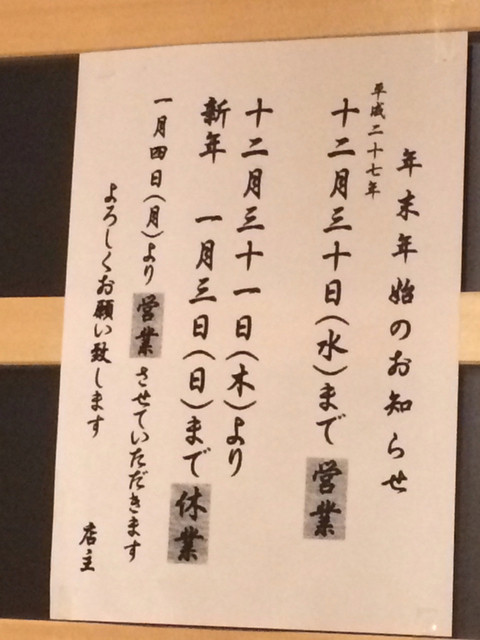 年末年始のお知らせ
平成二十七年
十二月三十日(水)まで 営業
十二月三十一日(木)より
新年 一月三日(日)まで 休業
一月四日(月)より 営業 させていただきます
よろしくお願い致します
店主